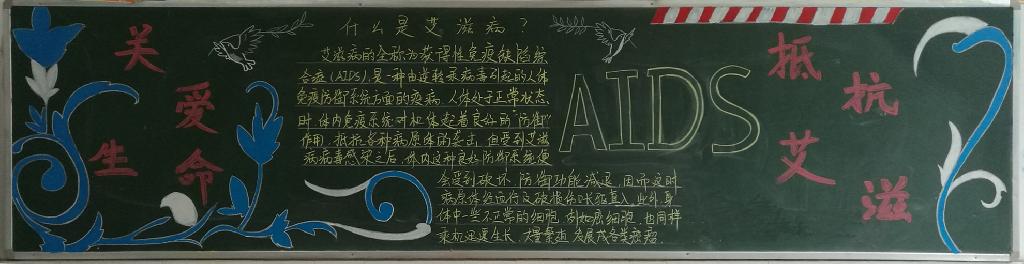 关爱生命
什么是艾滋病？
艾滋病的全称为获得性免疫缺陷综
合症(AIDS)，是一种由逆转录病毒引起的人体
免疫防御系统方面的疾病，人体处于正常状态
时，体内免疫系统对机体起着良好的"防御"
作用，抵抗各种病原体的袭击，但受到艾滋
病病毒感染之后，体内这种良好防御系统便
会受到破坏，防御功能减退，因而这时
病原体
体中一些不正常的细胞，例如癌细胞，也同样
乘机迅速生长，大量繁殖，发展成各类癌瘤。
AIDS
抵抗艾滋